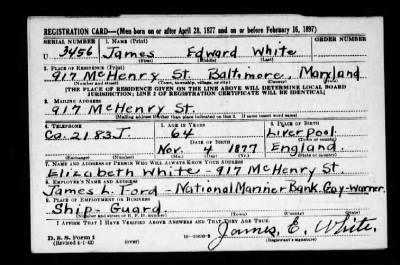 REGISTRATION CARD—(Men born on or after April 28, 1877 and on or before February 16, 1897)
SERIAL NUMBER 1. NAME (Print) ORDER NUMBER
U 3456 James Edward White
(First) (Middle) (Last)
2. PLACE OF RESIDENCE (Print)
917 McHenry St. Baltimore, Maryland
[THE PLACE OF RESIDENCE GIVEN ON THE LINE ABOVE WILL DETERMINE LOCAL BOARD
JURISDICTION; LINE 2 OF REGISTRATION CERTIFICATE WILL BE IDENTICAL]
3. MAILING ADDRESS
917 McHenry St.
[Mailing address if other than place indicated on line 2. If same insert word same]
4. TELEPHONE 5. AGE IN YEARS 6. PLACE OF BIRTH
Ca. 2183J. 64 Liverpool
DATE OF BIRTH
Nov. 4 1877 England.
(Exchange) (Number) (Mo.) (Day) (Yr.) (State or country)
7. NAME AND ADDRESS OF PERSON WHO WILL ALWAYS KNOW YOUR ADDRESS
Elizabeth White - 917 McHenry St.
8. EMPLOYER'S NAME AND ADDRESS
James L. Ford - National Marine Bank. Gay-Warner.
9. PLACE OF EMPLOYMENT OR BUSINESS
Ship-Guard.
(Number and street or R. F. D. number) (Town) (County) (State)
I AFFIRM THAT I HAVE VERIFIED ABOVE ANSWERS AND THAT THEY ARE TRUE.
James, E. White.
D. S. S. Form 1
(Revised 4-1-42) (over) (Registrant's signature)